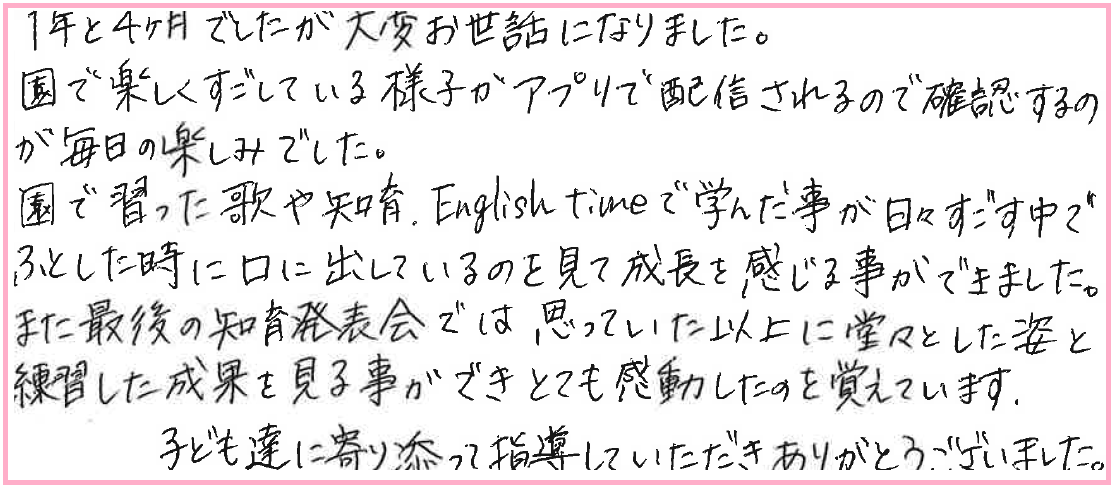 1年と4ヶ月でしたが大変お世話になりました。
園で楽しくすごしている様子がアプリで配信されるので確認するの
が毎日の楽しみでした。
園で習った歌や知育、English timeで学んだ事が日々すごす中で
ふとした時に口に出しているのを見て成長を感じる事ができました。
また最後の知育発表会では思っていた以上に堂々とした姿と
練習した成果を見る事ができとても感動したのを覚えています.
子ども達に寄り添って指導していただきありがとうございました。